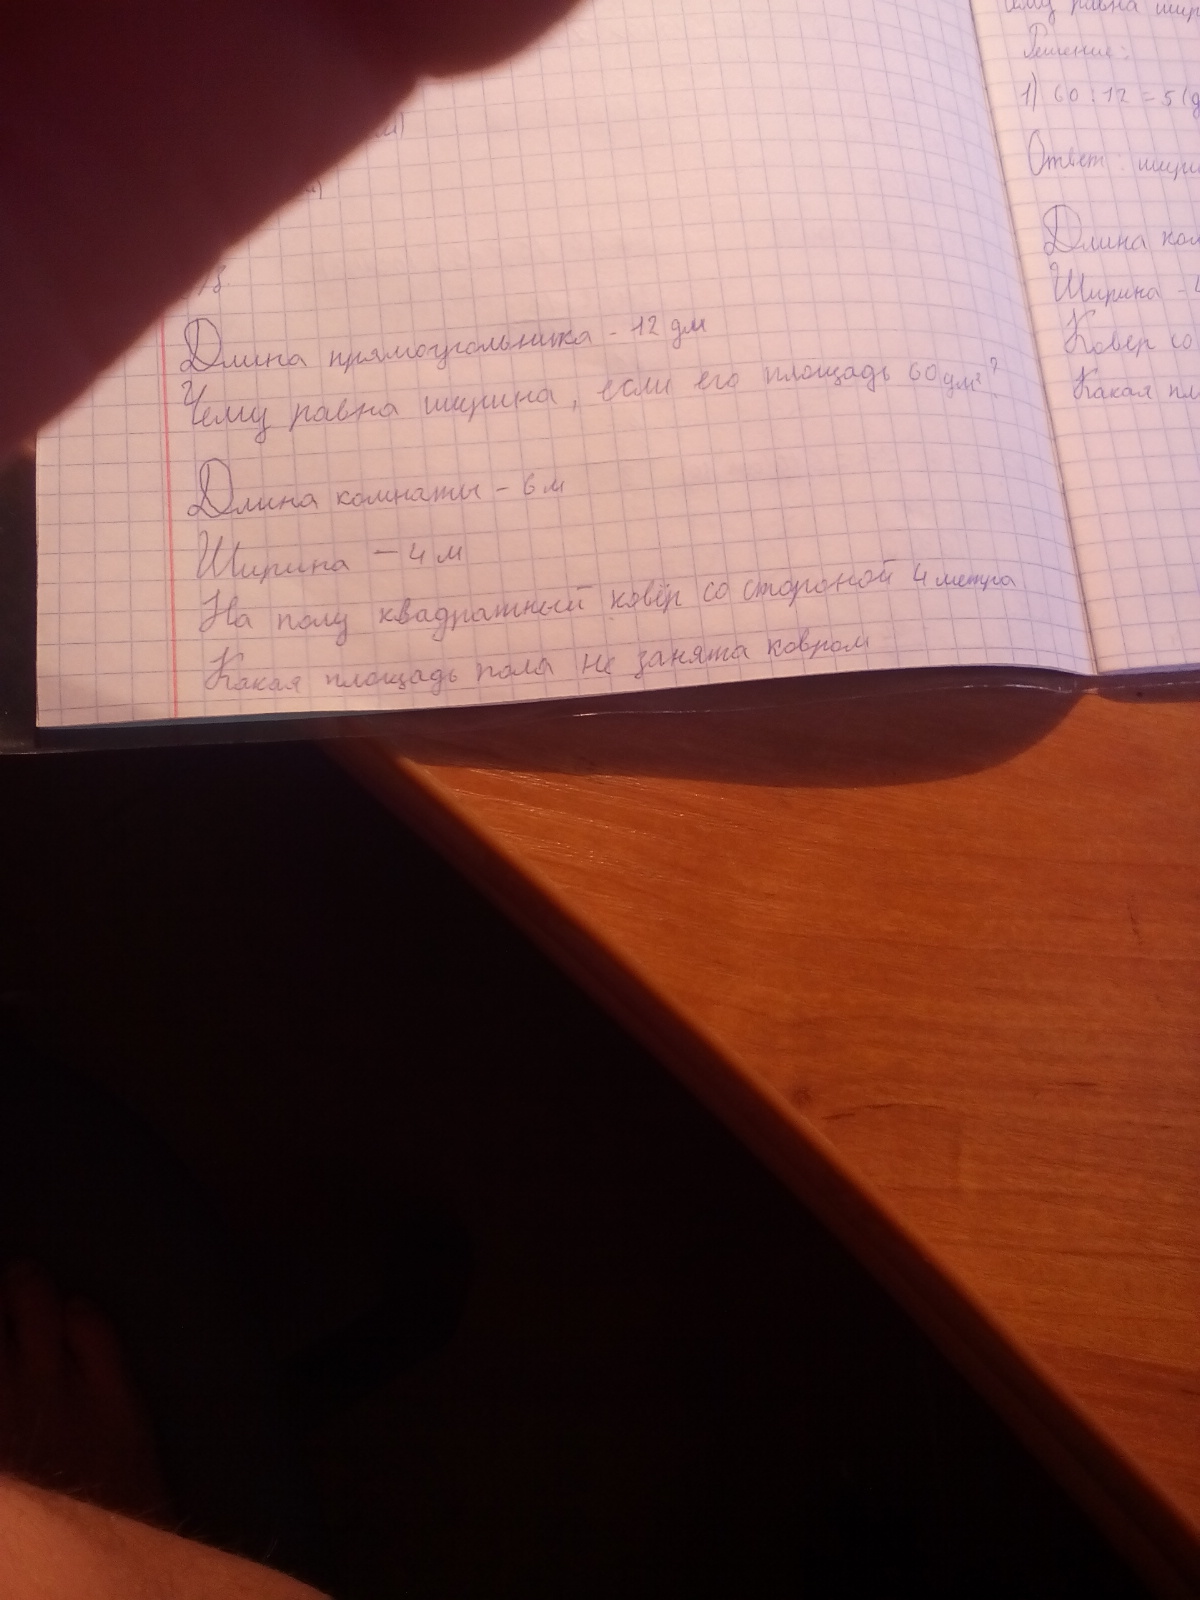 Длина прямоугольника - 12 дм
Чему равна ширина, если его площадь 60 дм²?
Длина комнаты - 6 м
Ширина - 4 м
На полу квадратный ковёр со стороной 4 метра
Какая площадь пола не занята ковром
равна
Решение:
1) 60 : 12 = 5 (
Ответ:
Длина
Ширина -
Ковер со
Какая